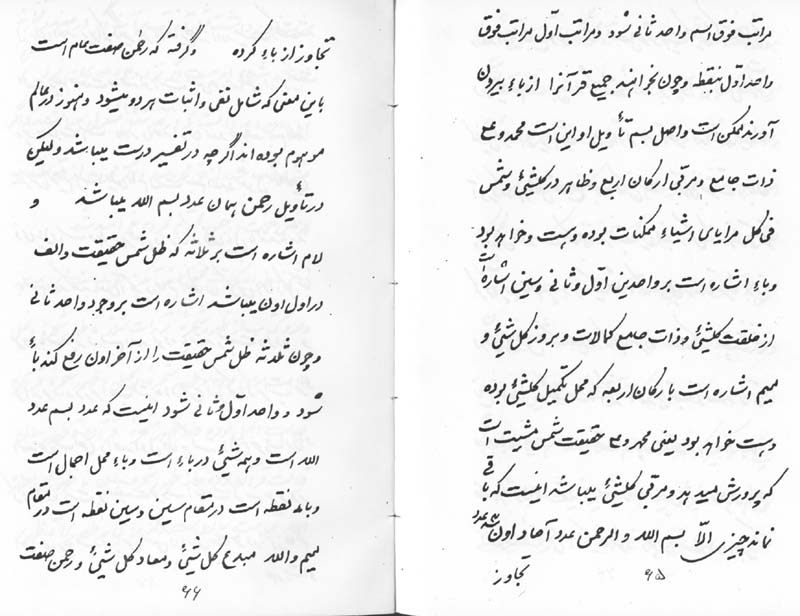 مراتب فوق اسم واحد ثانی شود و مراتب اول مراتب فوق
واحد اول بنقطه و چون نخواهند جمیع قرآنرا از باء بیرون
آورند ممکن است و اصل بسم تأویل او این است محمد و ع
ذات جامع و مرقی ارکان اربع و ظاهر در کلشیئ و شمس
فی کل مرایای اشیاء ممکنات بوده و هست و خواهد بود
و باء اشاره است بر واحدین اول و ثانی و سین اشاره است
از خلقت کلشیئ و ذات جامع کمالات و بروز کل شیئ و
میم اشاره است بارکان اربعه که محل تکمیل کلشیئ بوده
و هست خواهد بود یعنی محمد و ع حقیقت شمس مشیت است
که پرورش میدهد و مرقی کلشیئ میباشد اینست که باقی
نماند چیزی الّا بسم الله و الرحمن عدد آحاد اون
تجاوز
۶۵
تجاوز از باء کرده و گرفته که رحمن صفت عام است
باین معنی که شامل نفی و اثبات هر دو میشود و هنوز در عالم
موهوم بوده اند اگر چه در تفسیر درست میباشد ولیکن
در تأویل رحمن همان عدد بسم الله میباشد و
لام اشاره است بر ثلاثه که ظل شمس حقیقت و الف
در اول اون میباشد اشاره است بر وجود واحد ثانی
و چون ثلاثه ظل شمس حقیقت را از آخر اون رفع کند باء
شود و واحد اول و ثانی شود اینست که عدد بسم عدد
الله است و همه شیئ در باء است و باء محل اجمال است
و باء نقطه است در مقام سین و سین نقطه است در مقام
میم و الله مبدع کل شیئ و معاد کل شیئ و رحمن صفت
۶۶